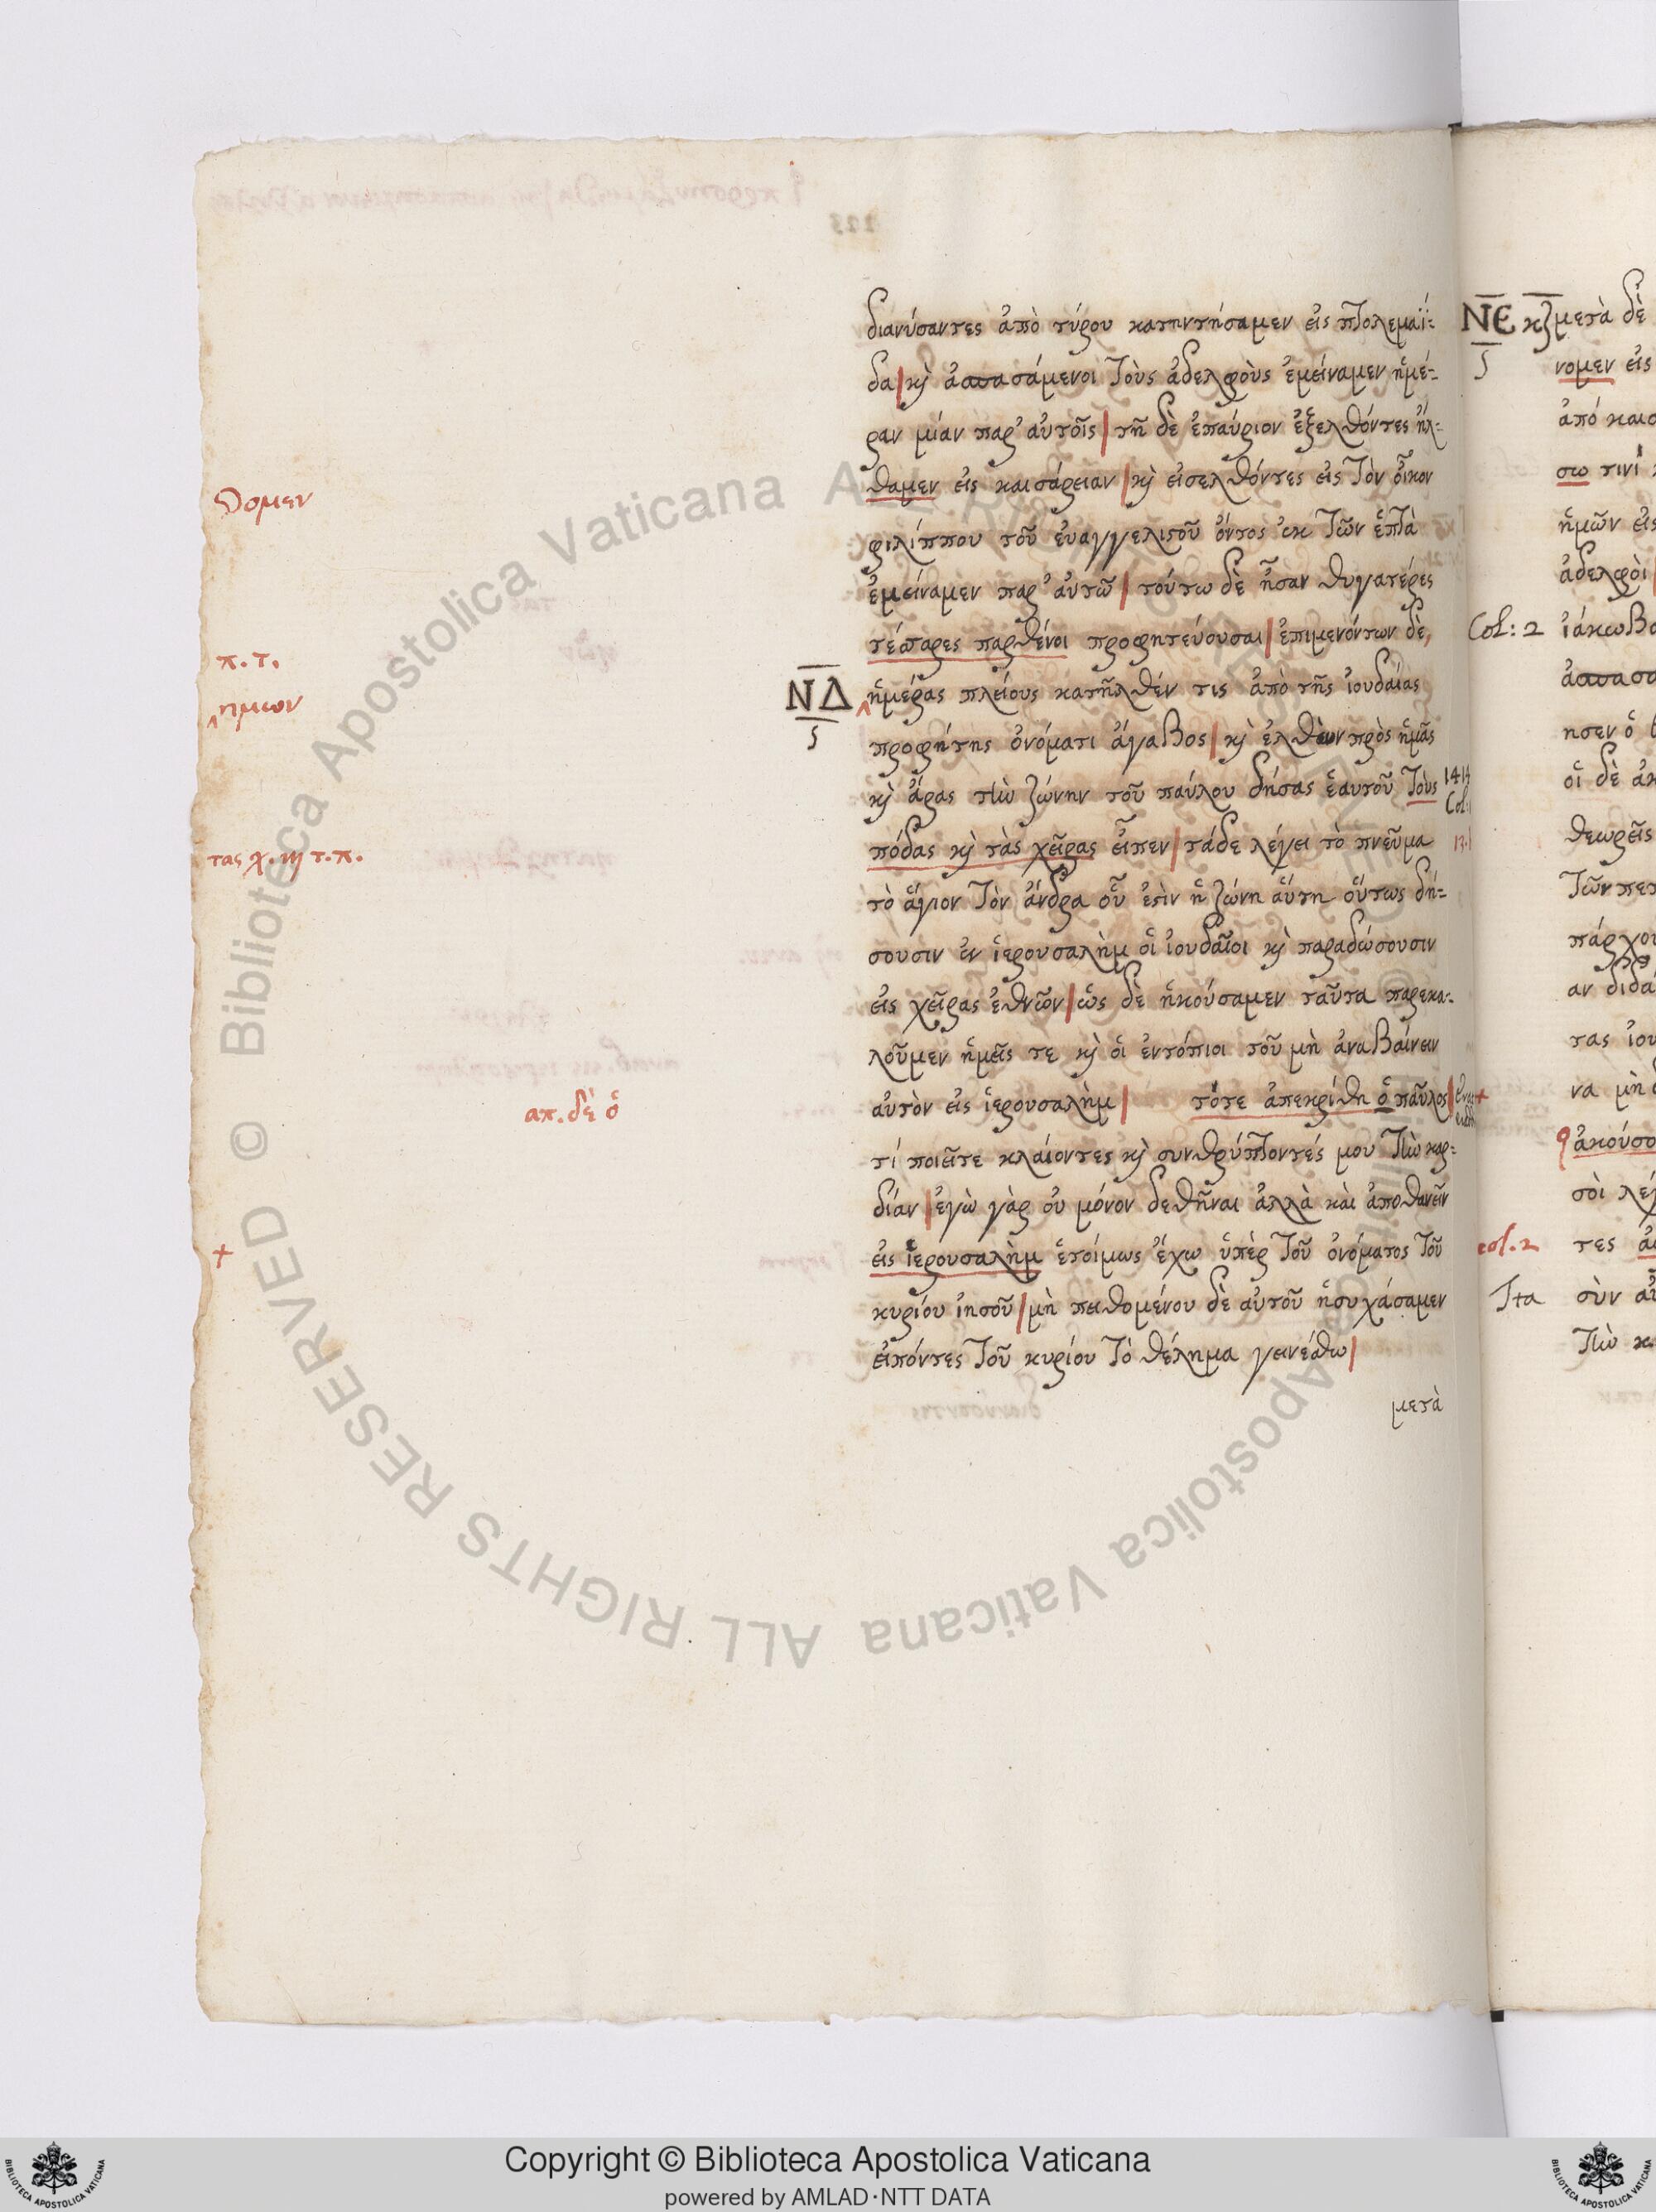 διανύσαντες ἀπὸ τύρου κατηντήσαμεν εἰς πτολεμαΐ:
δα | κὶ ἀσπασάμενοι τοὺς ἀδελφοὺς ἐμείναμεν ἡμέ:
ραν μίαν παρ' αὐτοῖς | τῆ δὲ ἐπαύριον ἐξελθόντες ἤλ:
θαμεν εἰς καισάρειαν | κὶ εἰσελθόντες εἰς τὸν οἶκον
δομεν
φιλίππου τοῦ ἐυαγγελιστοῦ ὄντος ἐκ τῶν ἑπτὰ
ἐμείναμεν παρ' αὐτῶ | τούτω δὲ ἦσαν θυγατέρες
τέσσαρες παρθένοι προφητεύουσαι | ἐπιμενόντων δὲ
π. τ.
ΝΔ
ς
ἡμέρας πλείους κατῆλθέν τις ἀπὸ τῆς ἰουδαίας
ημων
προφήτης ὀνόματι ἄγαβος | κὶ ἐλθὼν πρὸς ἡμᾶς
κὶ ἄρας τὴν ζώνην τοῦ παύλου δήσας ἑαυτοῦ τοὺς
πόδας κὶ τὰς χεῖρας εἶπεν | τάδε λέγει τὸ πνεῦμα
τας χ. κὶ τ. π.
τὸ ἅγιον τὸν ἄνδρα οὗ ἐστὶν ἡ ζώνη ἅυτη οὕτως δή:
σουσιν ἐν ἱερουσαλὴμ οἱ ἰουδαῖοι κὶ παραδώσουσιν
εἰς χεῖρας ἐθνῶν | ὡς δὲ ἠκούσαμεν ταῦτα παρεκα:
λοῦμεν ἡμεῖς τε κὶ οἱ ἐντόπιοι τοῦ μὴ ἀναβαίνειν
αὐτὸν εἰς ἱερουσαλὴμ | τότε ἀπεκρίθη ὁ παῦλος |
απ. δὲ ὁ
τί ποιεῖτε κλαίοντες κὶ συνθρύπτοντές μου τὴν καρ:
δίαν | ἐγὼ γὰρ οὐ μόνον δεθῆναι ἀλλὰ καὶ ἀποθανεῖν
εἰς ἱερουσαλὴμ ἑτοίμως ἔχω ὑπὲρ τοῦ ὀνόματος τοῦ
+
κυρίου ἰησοῦ | μὴ πειθομένου δὲ αὐτοῦ ἡσυχάσαμεν
εἰπόντες τοῦ κυρίου τὸ θέλημα γεινέσθω |
μετὰ
ΝΕ κζ μετὰ δὲ
ς
νομεν εἰς
ἀπό καισ
σω τινὶ
ἡμῶν εἰς
ἀδελφὸι
Col: 2 ἰάκωβο
ἀσπασα
ησεν ὁ
οἱ δὲ ἀκ
θεωρεῖς
τῶν πεπ
πάρχου
αν διδα
τας ἰου
να μὴ
ἀκούσο
σὸι λέγ
col. 2 τες
Ita σὺν αὐ
τὴν κ
Copyright © Biblioteca Apostolica Vaticana
powered by AMLAD·NTT DATA
© Biblioteca Apostolica Vaticana ALL RIGHTS RESERVED